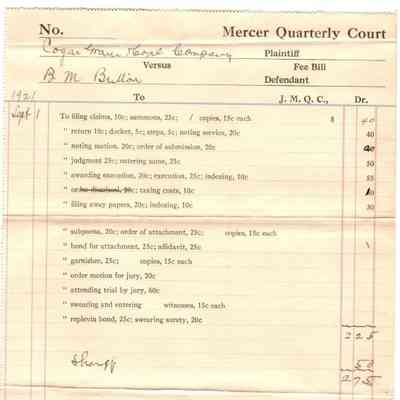 No. Mercer Quarterly Court
Cogar Grain Coal Company Plaintiff
Versus Fee Bill
B M Button Defendant
1921 To J. M. Q. C., Dr.
Sept 1 To filing claims, 10c; summons, 25c; / copies, 15c each $ 40
" return 10c; docket, 5c; steps, 5c; noting service, 20c 40
" noting motion, 20c; order of submission, 20c
" judgment 25c; entering same, 25c 50
" awarding execution, 20c; execution, 25c; indexing, 10c 55
" taxing costs, 10c 10
" filing away papers, 20c; indexing, 10c 30
" subpoena, 20c; order of attachment, 25c; copies, 15c each
" bond for attachment, 25c; affidavit, 25c
" garnishee, 25c; copies, 15c each
" order motion for jury, 20c
" attending trial by jury, 60c
" swearing and entering witnesses, 15c each
" replevin bond, 25c; swearing surety, 20c
2 25
Sheriff 50
2 75